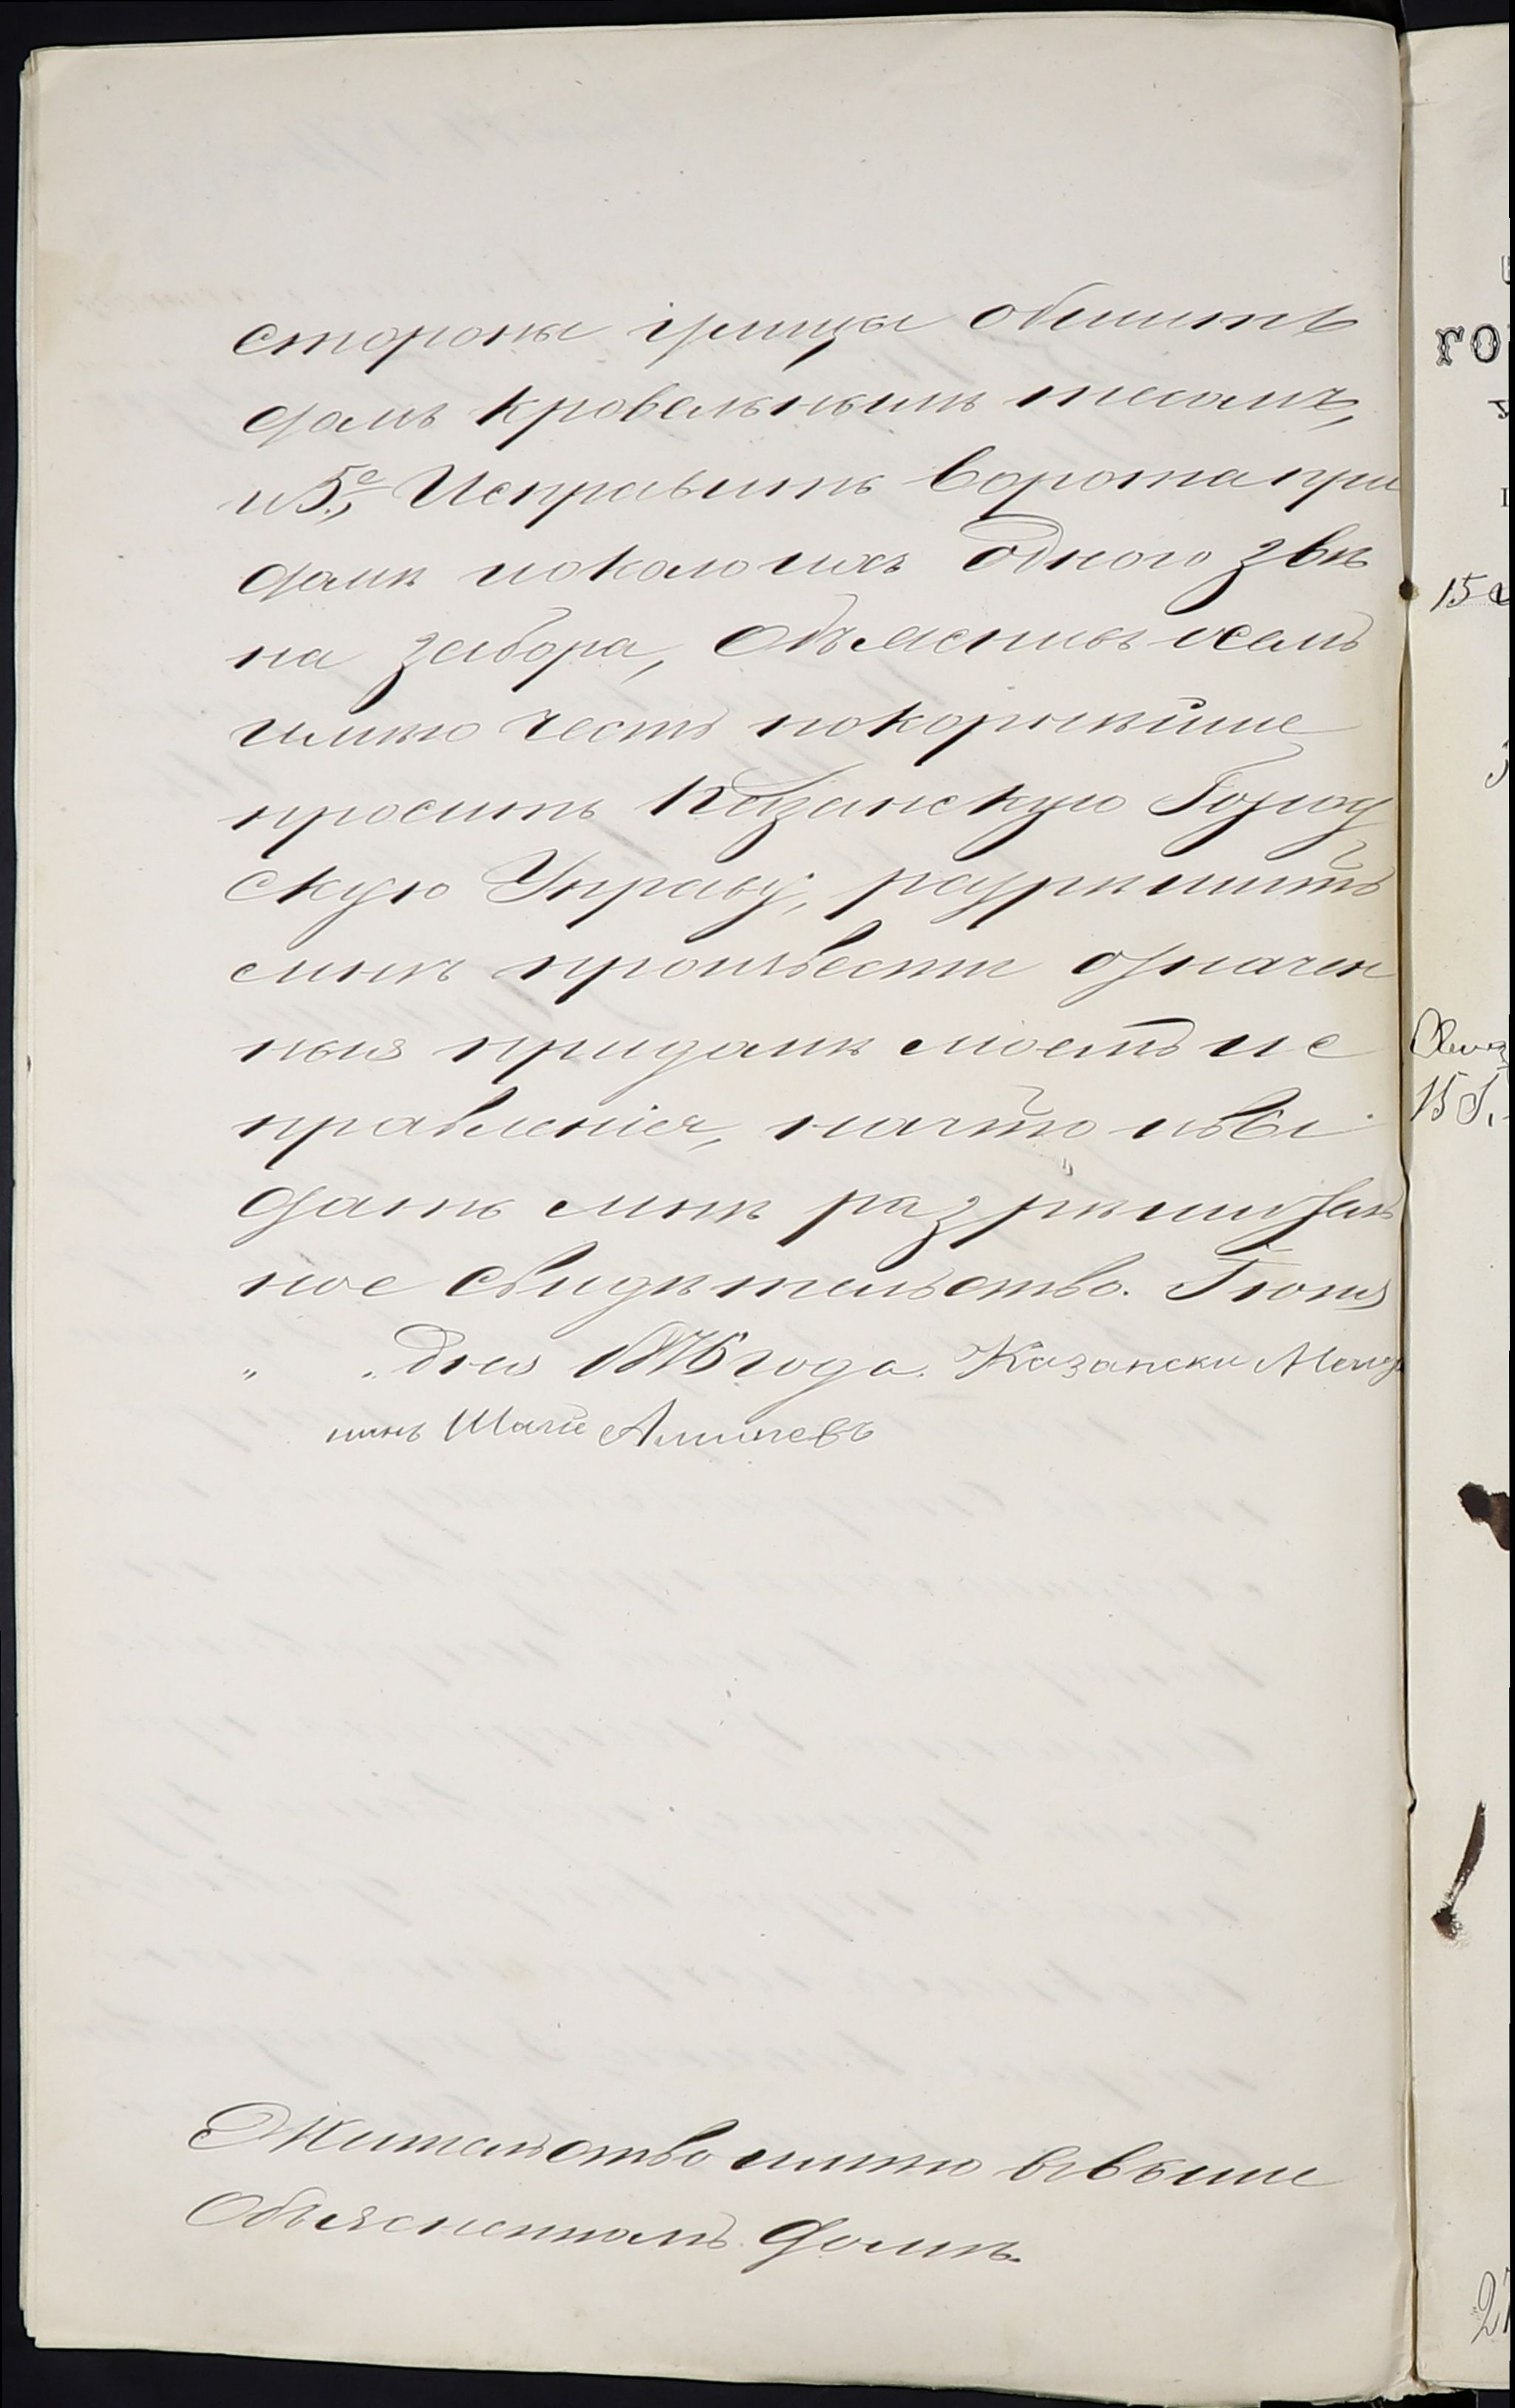 стороны улицы обшить
домъ кровельнымъ тесомъ,
и 5е., Исправить ворота при
домѣ и околоихъ одного звѣ
на забора, Объяснивъ осемъ
имѣю честь покорнѣйше
просить Казанскую Город
скую Управу, разрѣшить
мнѣ произвести означен
ныя придомѣ моемъ ис
правленія, начто и вы
дать мнѣ разрѣшитель
ное свидѣтельство. Іюня
" " дня 1876 года. Казански Меща
нинъ Шаги Алишевъ
Жительство имѣю въвыше
Объясненномъ домѣ.
ГО
15